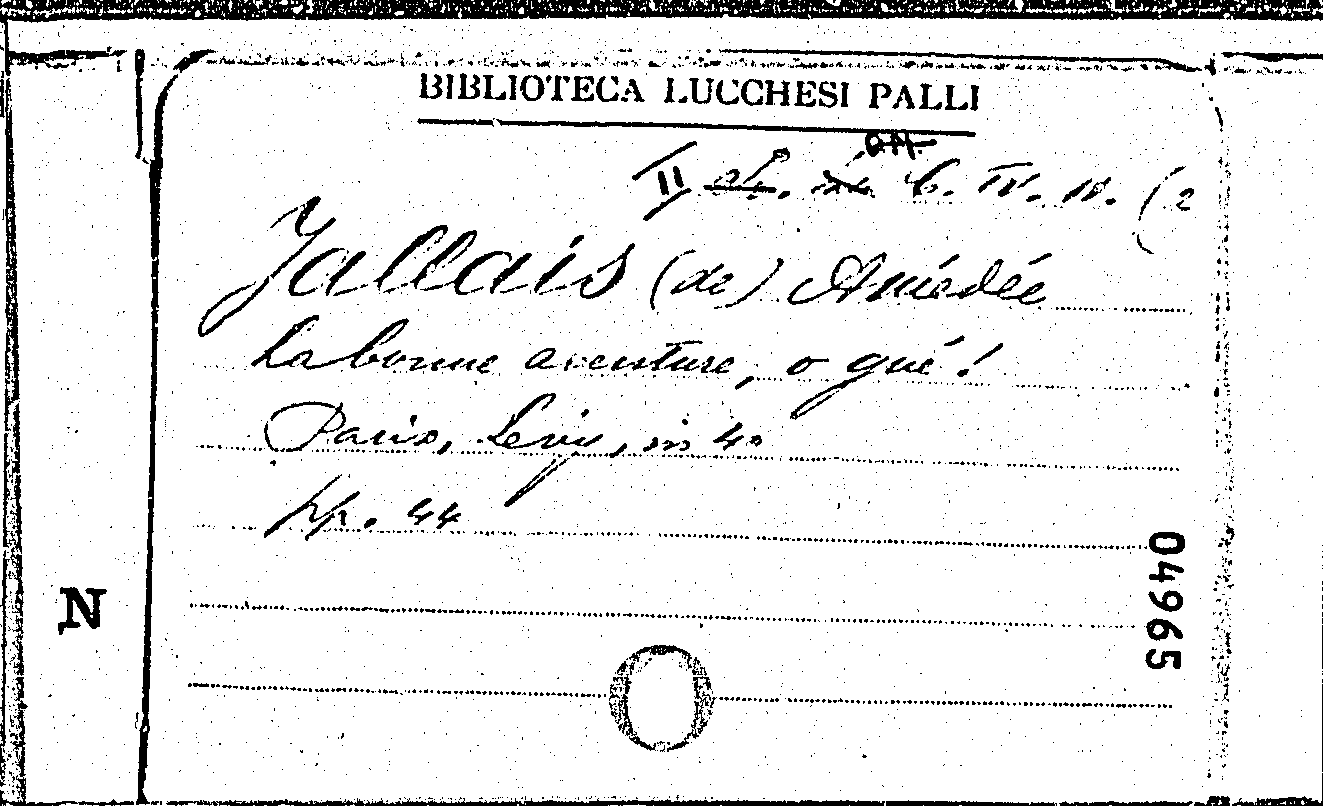 BIBLIOTECA LUCCHESI PALLI
II C. IV. IV. (2
Jallais (de) Amédée
La bonne aventure, o gué!
Paris, Lévy, in 4o
pp. 44
04965
N